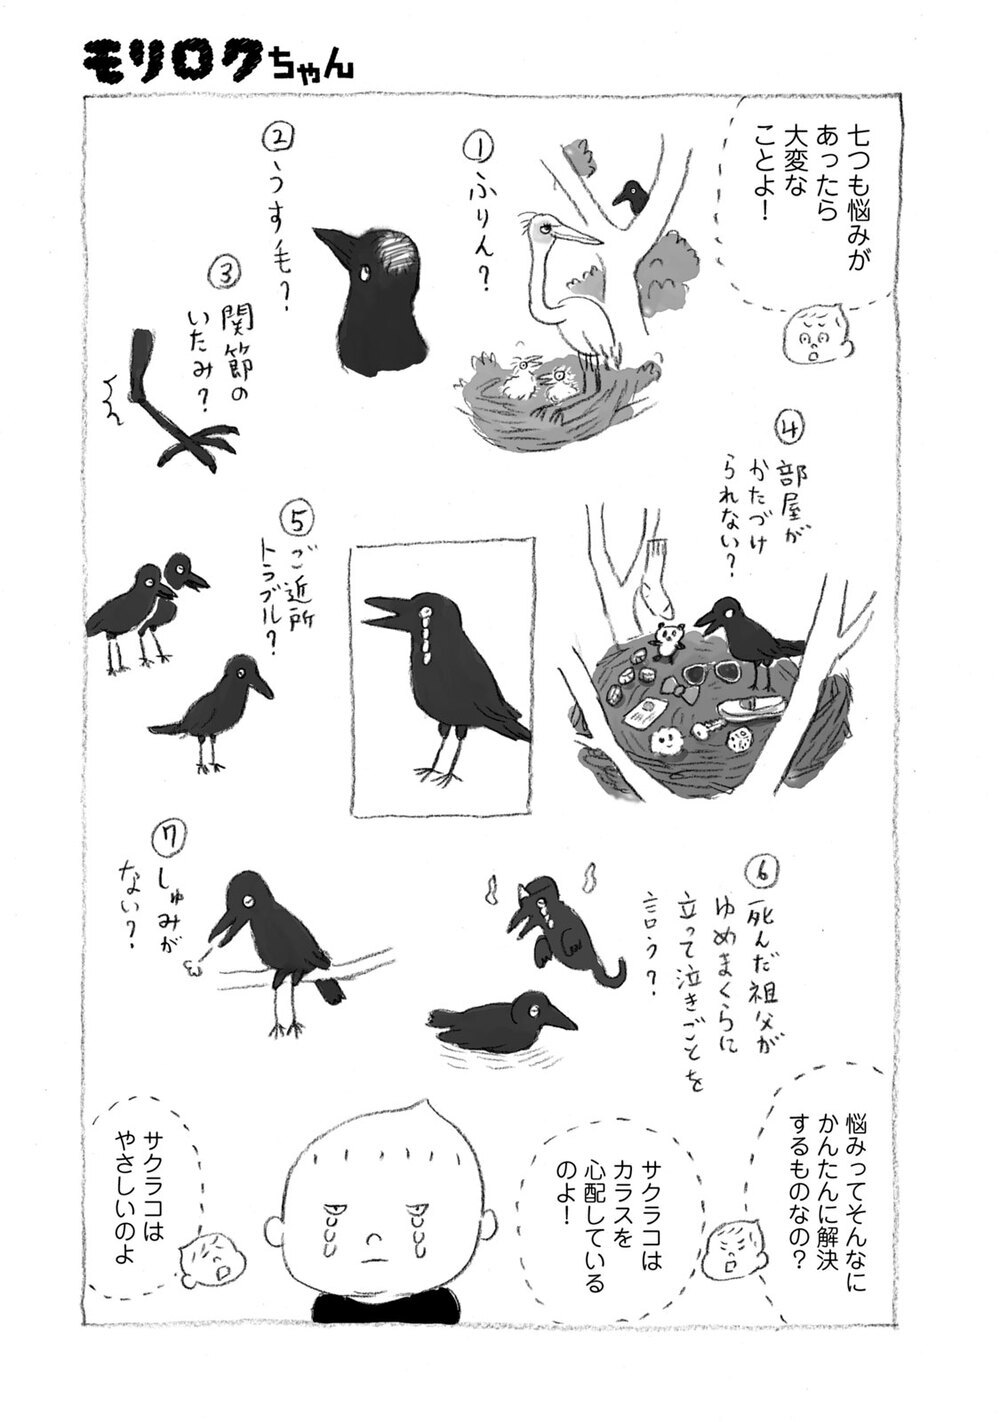 モリロクちゃん
七つも悩みが
あったら
大変な
ことよ！
①ふりん？
②うす毛？
③関節の
いたみ？
④部屋が
かたづけ
られない？
⑤ご近所
トラブル？
⑥死んだ祖父が
ゆめまくらに
立って泣きごとを
言う？
⑦しゅみが
ない？
悩みってそんなに
かんたんに解決
するものなの？
サクラコは
カラスを
心配している
のよ！
サクラコは
やさしいのよ